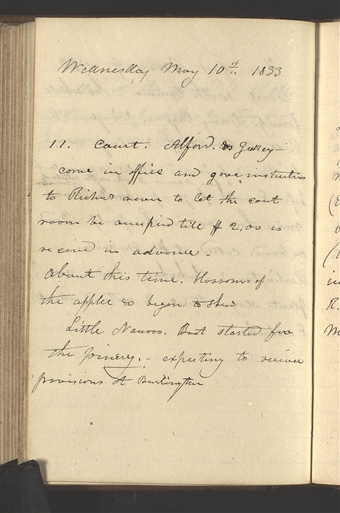 Wednesday May 10th 1833
11. Court. Alford. &
come in office and gave instructions
to never to let the court
room be occupied till $ 2,00 is
received in advance -
About this time. blossoms of
the apple & began to shew
Little Boat started for
the - expecting to receive
provisions at Burlington